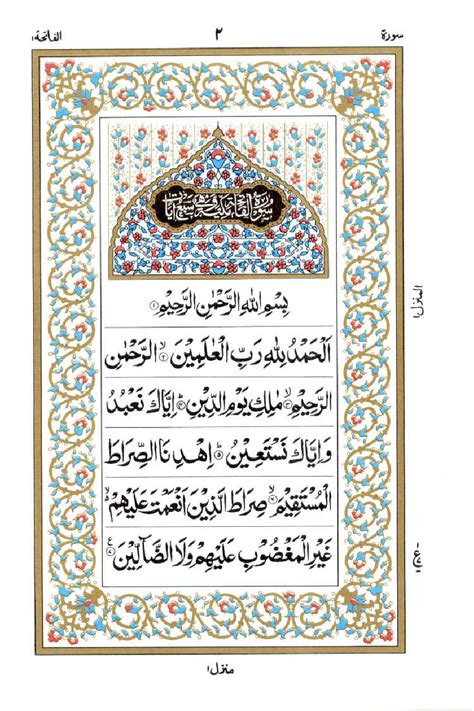 سورة ٢ الفاتحة ١
سورة الفاتحة مكية وهي سبع آيات
بِسْمِ اللهِ الرَّحْمٰنِ الرَّحِيْمِ ١
اَلْحَمْدُ لِلّٰهِ رَبِّ الْعٰلَمِيْنَ ٢ الرَّحْمٰنِ
الرَّحِيْمِ ٣ مٰلِكِ يَوْمِ الدِّيْنِ ٤ اِيَّاكَ نَعْبُدُ
وَاِيَّاكَ نَسْتَعِيْنُ ٥ اِهْدِنَا الصِّرَاطَ
الْمُسْتَقِيْمَ ٦ صِرَاطَ الَّذِيْنَ اَنْعَمْتَ عَلَيْهِمْ
غَيْرِ الْمَغْضُوْبِ عَلَيْهِمْ وَلَا الضَّآلِّيْنَ ٧
المنزل ١
منزل ١